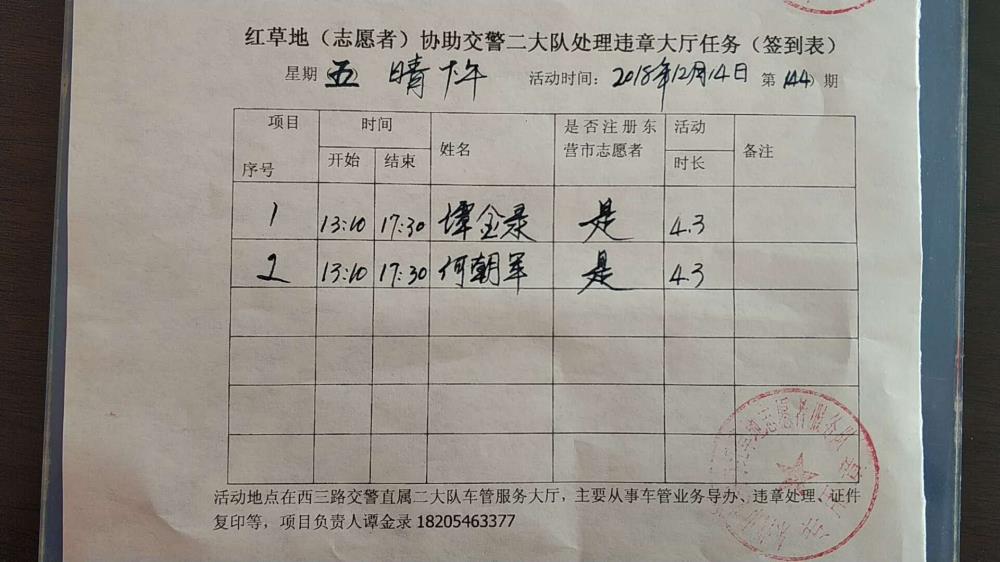 红草地（志愿者）协助交警二大队处理违章大厅任务（签到表）
星期 五 晴 下午 活动时间：2018年12月14日 第(144)期
项目 时间 姓名 是否注册东营市志愿者 活动时长 备注
序号 开始 结束
1 13:10 17:30 谭金录 是 4.3
2 13:10 17:30 何朝军 是 4.3
活动地点在西三路交警直属二大队车管服务大厅，主要从事车管业务导办、违章处理、证件
复印等，项目负责人谭金录 18205463377